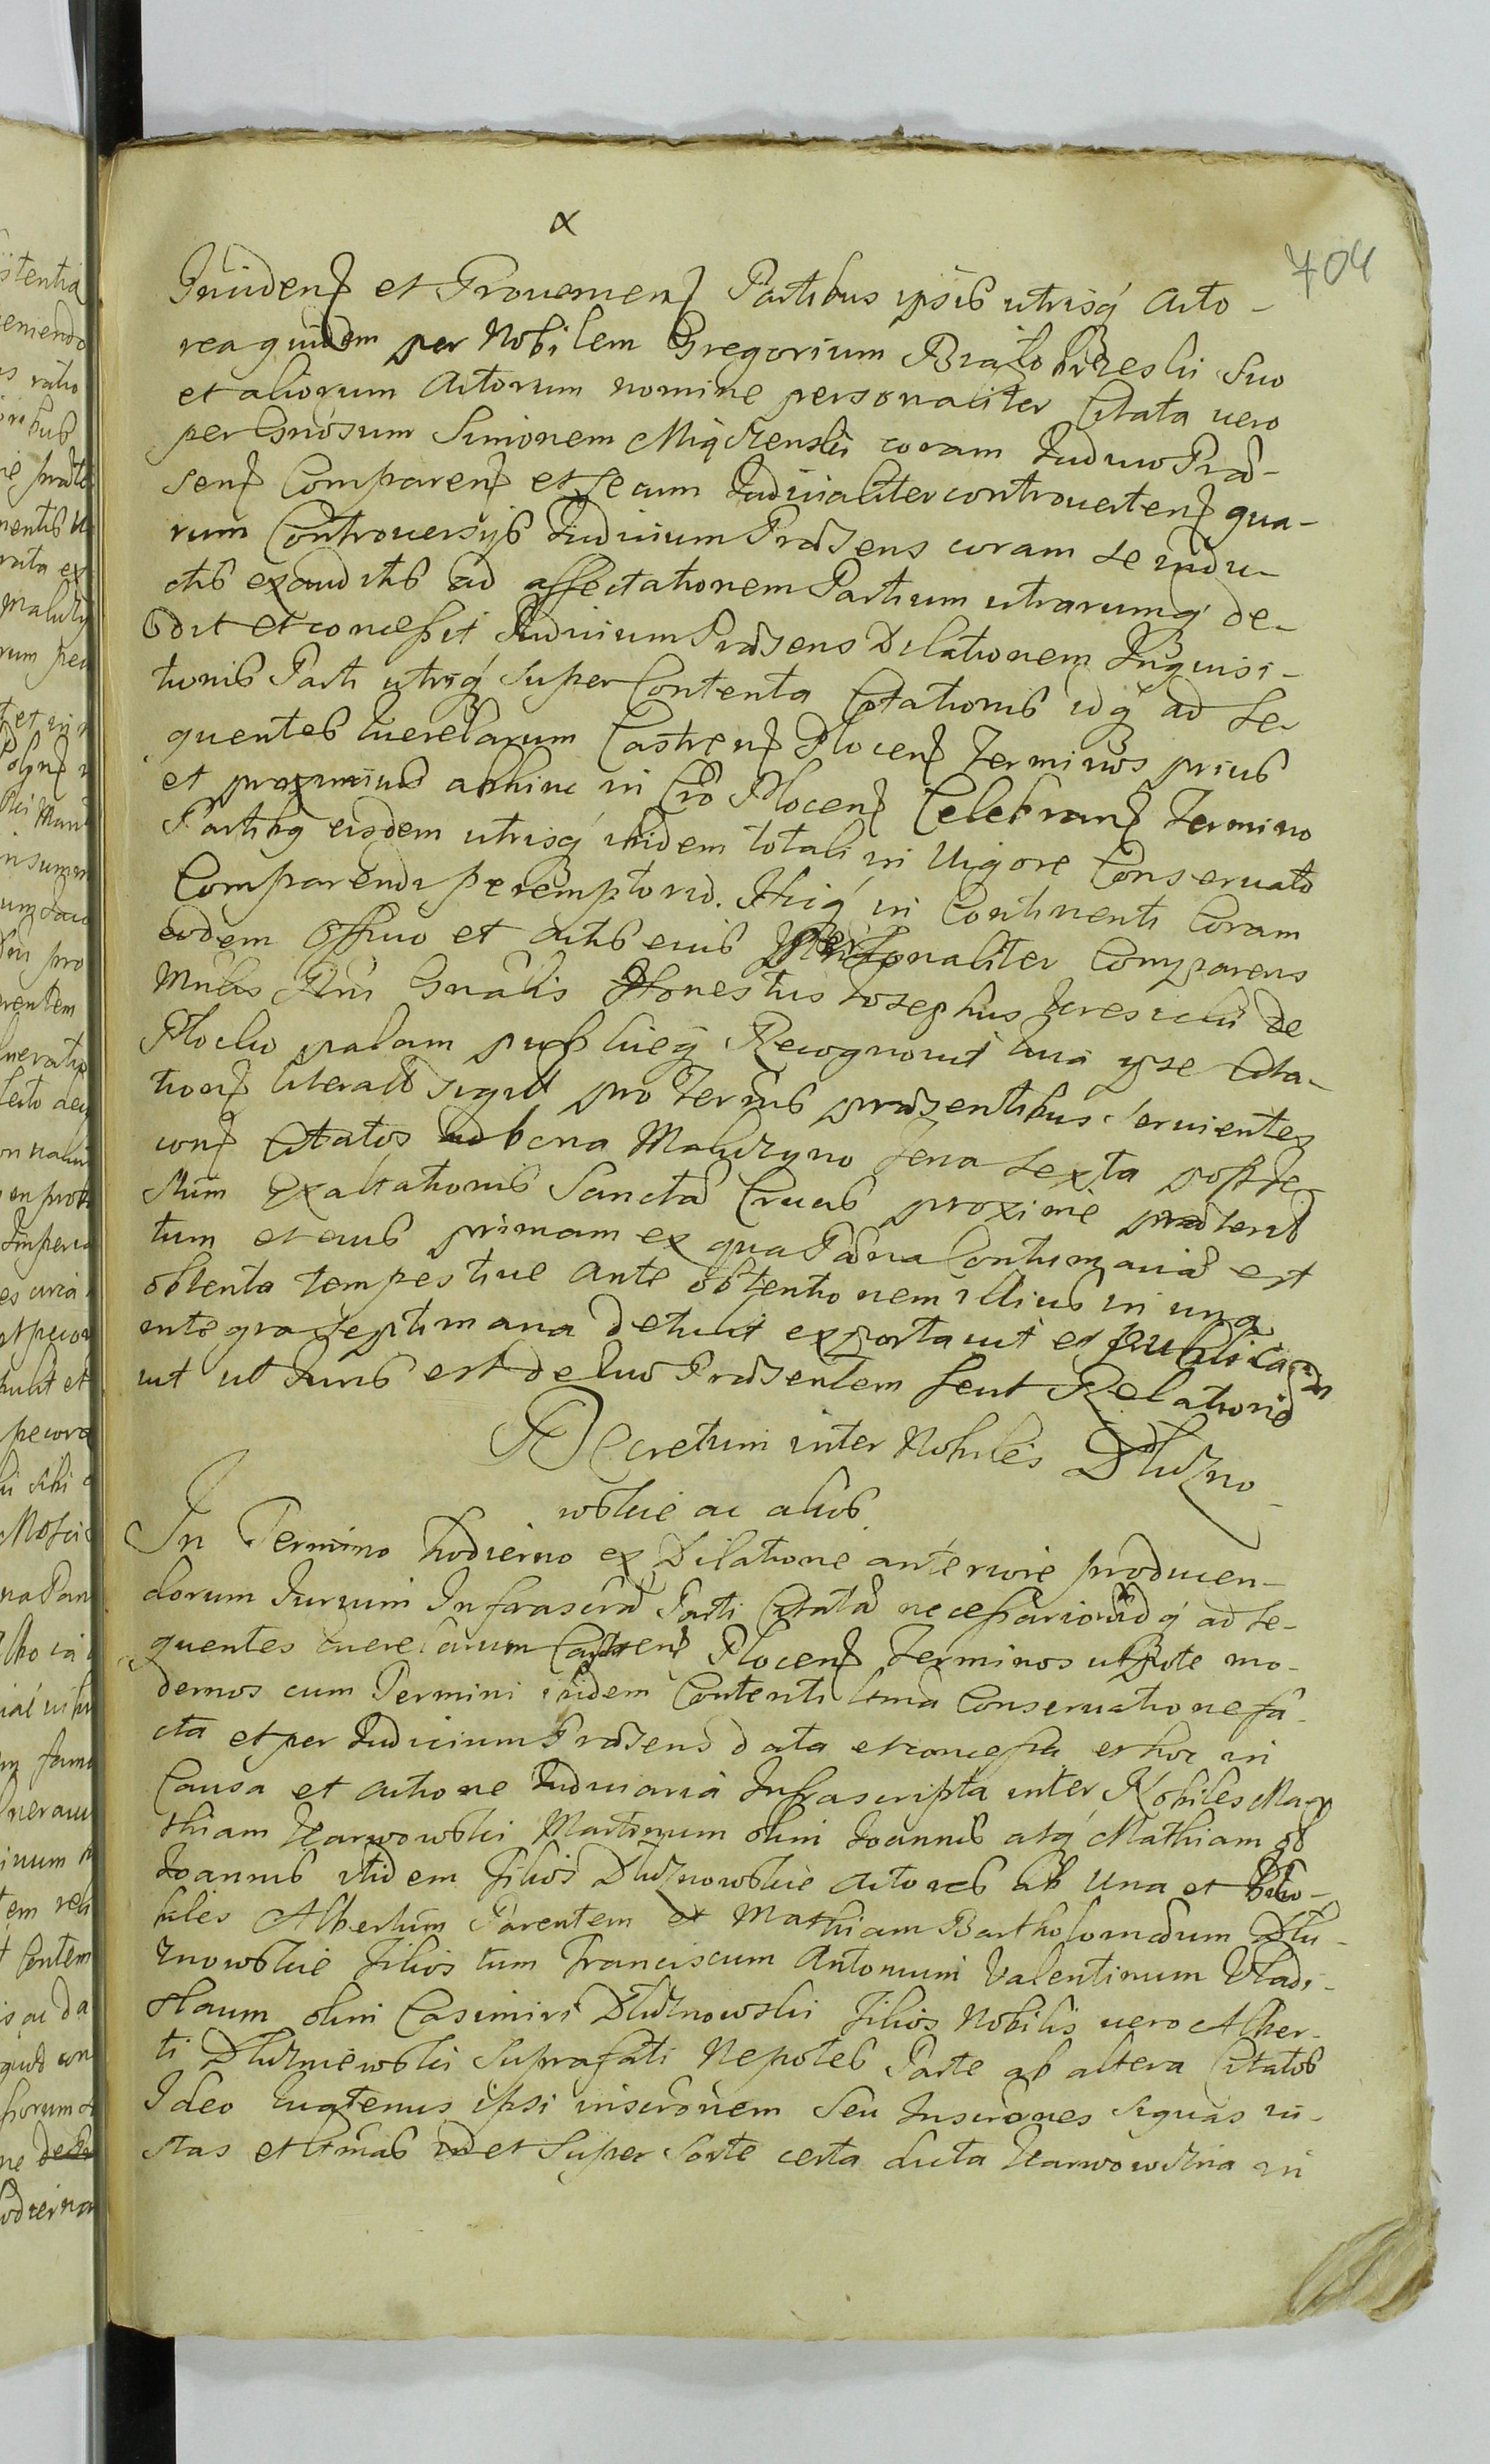 α
704
Inciden et Provenien Partibus ipsis utrisq Acto-
rea quidem per Nobilem Gregorium Białobrzeski suo
et aliorum Actorum nomine personaliter Citata vero
per Gnosum Simonem Miączenski coram Judicio Præ-
sen Comparen et secum Judicialiter controverten qua-
rum Controversijs Judicium Præsens coram se indu-
ctis exauditis ad affectationem Partium utrarumq de-
dit et concessit Judicium Præsens Dilationem Inquisi-
tionis Parti utriq super Contenta Citationis idq ad se-
quentes Querelarum Castren Plocen Terminos prius
et proxmius abhinc in Cro Plocen Celebran Termino
Partibq eisdem utrisq ibidem totali in Vigore Conservato
Comparendi peremptorie. Ibiq in Continenti Coram
eodem Officio et Actis eius personaliter Comparens
Mnlis Rni Gnalis Honestus Josephus de
Plocko palam publiceq Recognovit Quia ipse Cita-
tion literall sigill pro Terinis præsentibus servientes
con Citatos ad bona Maluzyno feria sexta post Fe-
stum Exaltationis Sanctæ Crucis proxime præterit
tum et eius primam ex qua Pæna Contumaciæ est
obtenta tempestive ante obtentionem illius in una
integra septimana detulit exportavit et publicav
it ut Juris est de Quo Præsentem fecit Relationē
Decretum inter Nobiles Dłuzno-
wskie ac alios
In Termino hodierno ex Dilatione anterioris producen-
dorum Jurium Infrascræ Parti Citatæ necessario idq ad se-
quentes Querelarum Castren Plocen Terminos utpote mo-
dernos cum Termini ibidem Contenti ltma Conservatione fa-
cta et per Judicium Præsens data et concessa et hoc in
Causa et actione Judiciaria Infrascripta inter Nobiles Ma-
thiam Karwowski Martinum olim Joannis atq Mathiam ol
Joannis itidem Filios Dłuznowskie Actores ab Una et Nbo-
biles Albertum Parentem et Mathiam Bartholomæum Dłu-
znowskie Filios tum Franciscum Antonium Valentinum Vladi-
slaum olim Casimiri Dłuznowski Filios Nobilis vero Alber-
ti Dłuzniewski suprafati Nepotes Parte ab altera Citatos
Ideo Quatenus ipsi inscrōnem seu Inscrōnes siquas iu-
stas et ltmas et super sorte certa dicta Karwowszna in